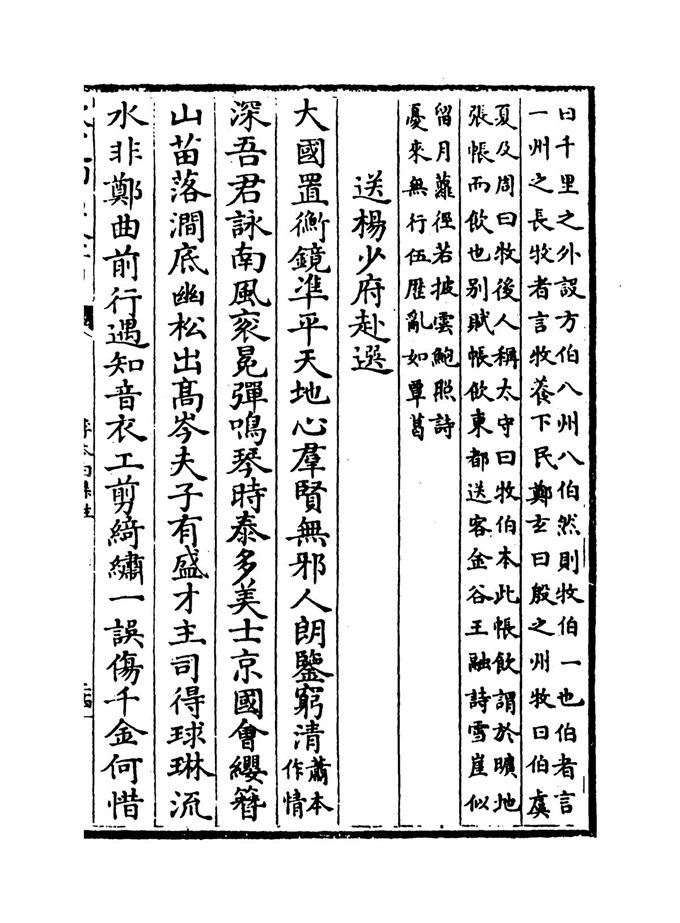 曰千里之外設方伯八州八伯然則牧伯一也伯者言
一州之長牧者言牧養下民鄭玄曰殷之州牧曰伯虞
夏及周曰牧後人稱太守曰牧伯本此帳飲謂於曠地
張帳而飲也别賦帳飲東都送客金谷王融詩雪崖似
留月蘿徑若披雲鮑照詩
憂來無行伍歴亂如覃葛
送楊少府赴選
大國置衡鏡凖平天地心羣賢無邪人朗鑒窮清
蕭本
作情
深吾君詠南風衮冕彈鳴琴時泰多美士京國會纓簪
山苗落澗底幽松出髙岑夫子有盛才主司得球琳流
水非鄭曲前行遇知音衣工剪綺繡一誤傷千金何惜